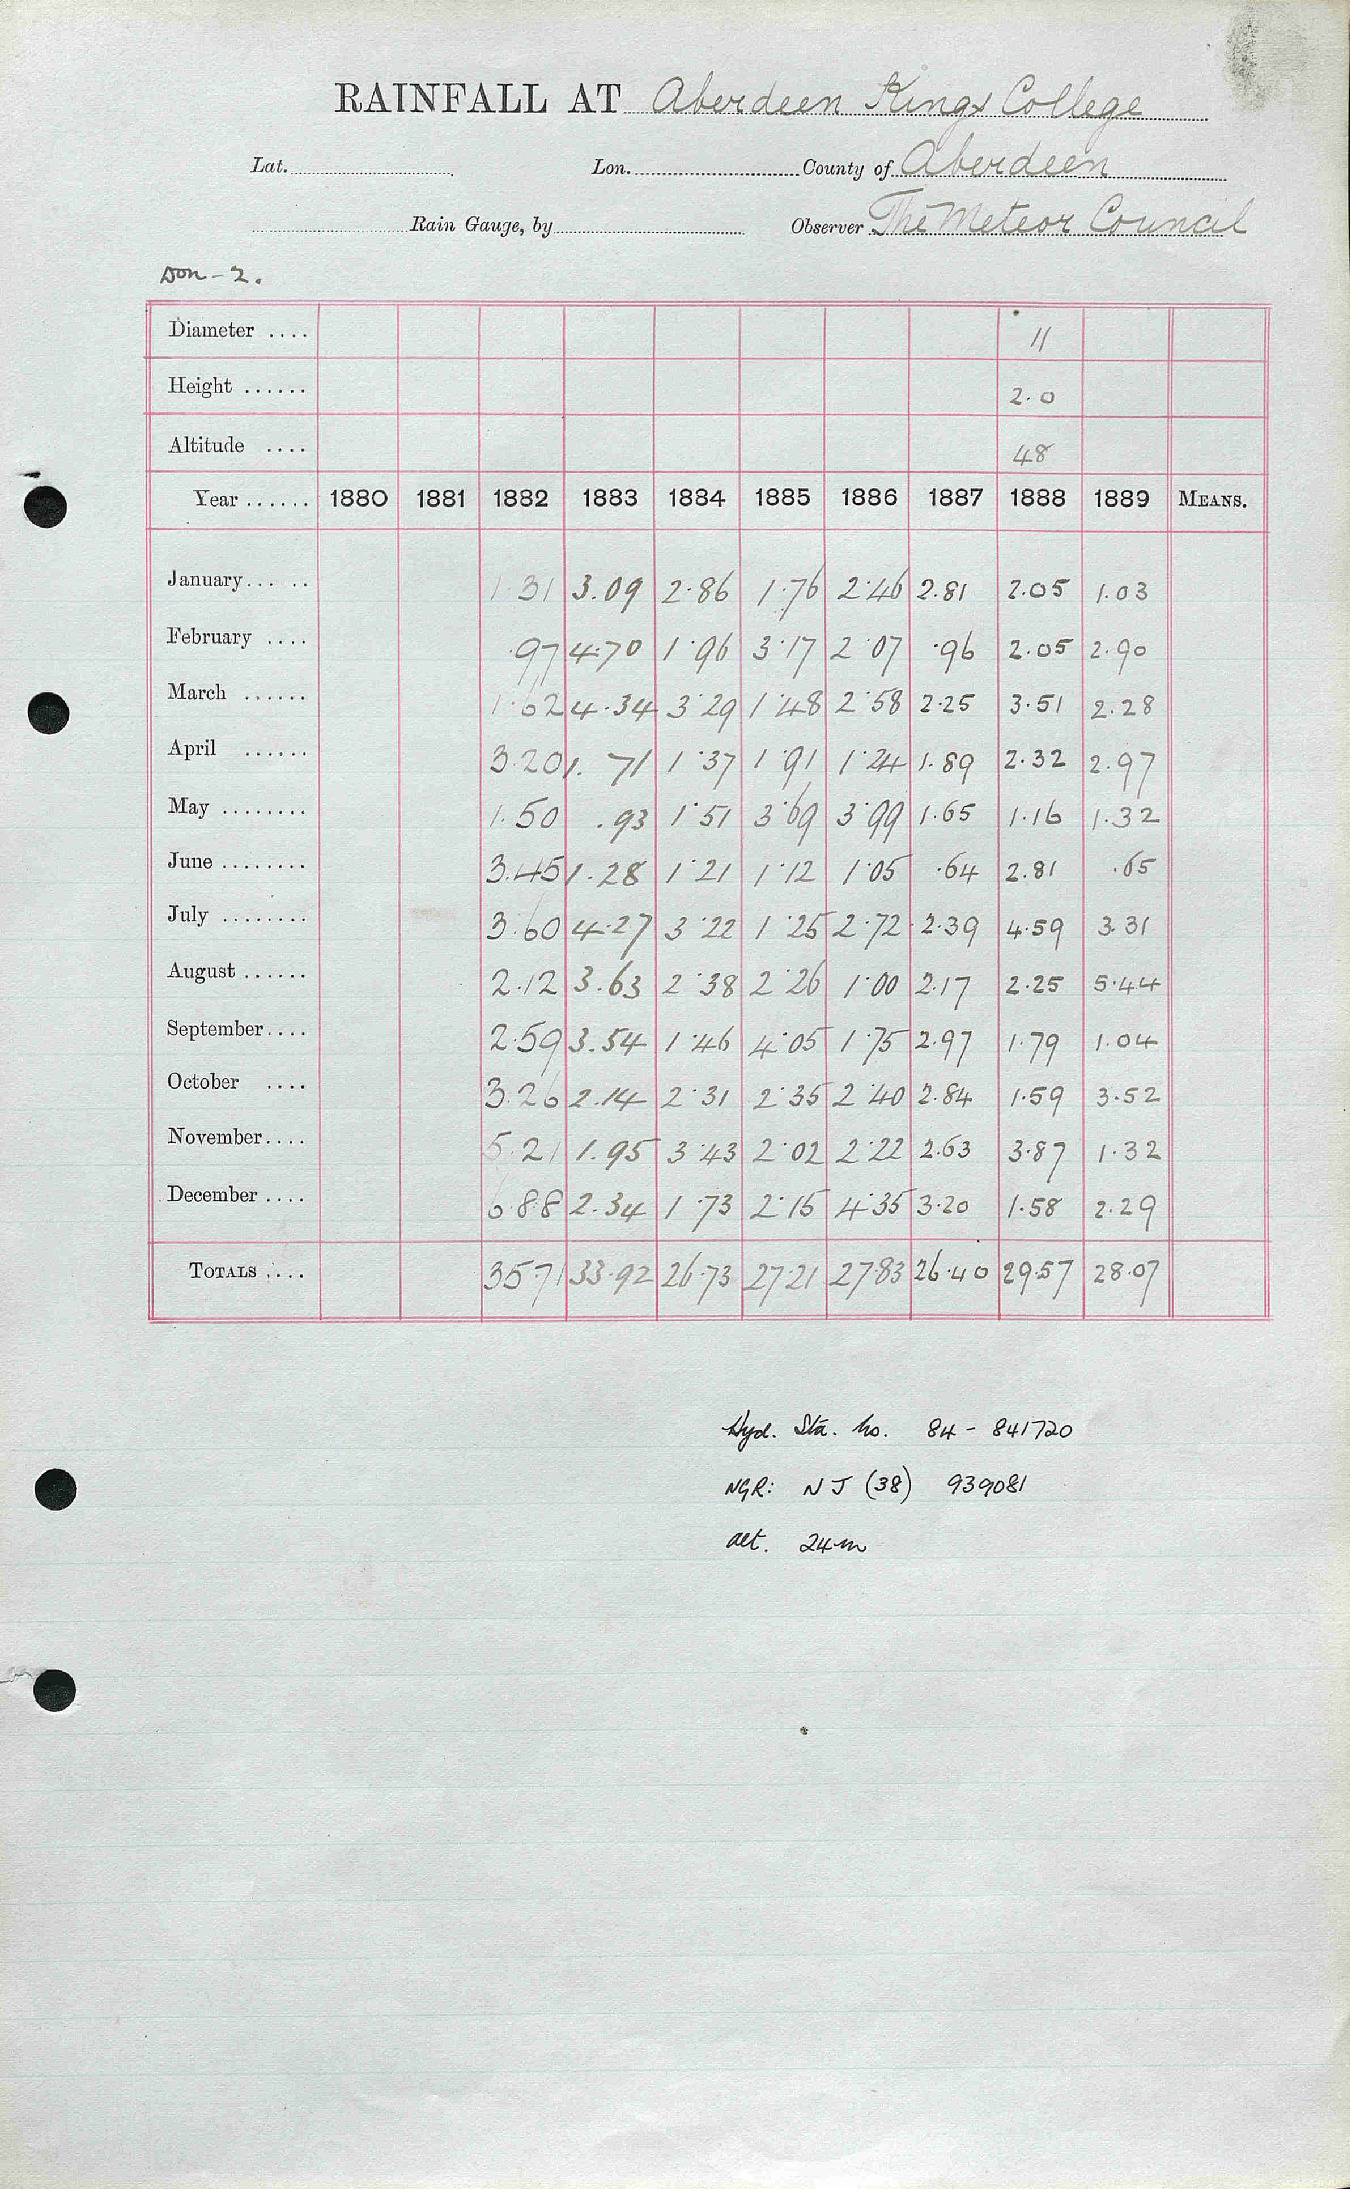 RAINFALL AT Aberdeen Kings College
Lat. Lon. County of Aberdeen
Rain Gauge, by Observer The Meteor Council
Don - 2.
Diameter .... 11
Height ...... 2.0
Altitude .... 48
Year ...... 1880 1881 1882 1883 1884 1885 1886 1887 1888 1889 MEANS.
January ..... 1.31 3.09 2.86 1.76 2.46 2.81 2.05 1.03
February .... .97 4.70 1.96 3.17 2.07 .96 2.05 2.90
March ...... 1.62 4.34 3.29 1.48 2.58 2.25 3.51 2.28
April ...... 3.20 1.71 1.37 1.91 1.24 1.89 2.32 2.97
May ........ 1.50 .93 1.51 3.69 3.99 1.65 1.16 1.32
June ........ 3.45 1.28 1.21 1.12 1.05 .64 2.81 .65
July ........ 3.60 4.27 3.22 1.25 2.72 2.39 4.59 3.31
August ...... 2.12 3.63 2.38 2.26 1.00 2.17 2.25 5.44
September.... 2.59 3.54 1.46 4.05 1.75 2.97 1.79 1.04
October .... 3.26 2.14 2.31 2.35 2.40 2.84 1.59 3.52
November.... 5.21 1.95 3.43 2.02 2.22 2.63 3.87 1.32
December .... 6.88 2.34 1.73 2.15 4.35 3.20 1.58 2.29
TOTALS .... 35.71 33.92 26.73 27.21 27.83 26.40 29.57 28.07
Hyd. Sta. No. 84 - 841720
NGR: NJ (38) 939081
alt. 24m